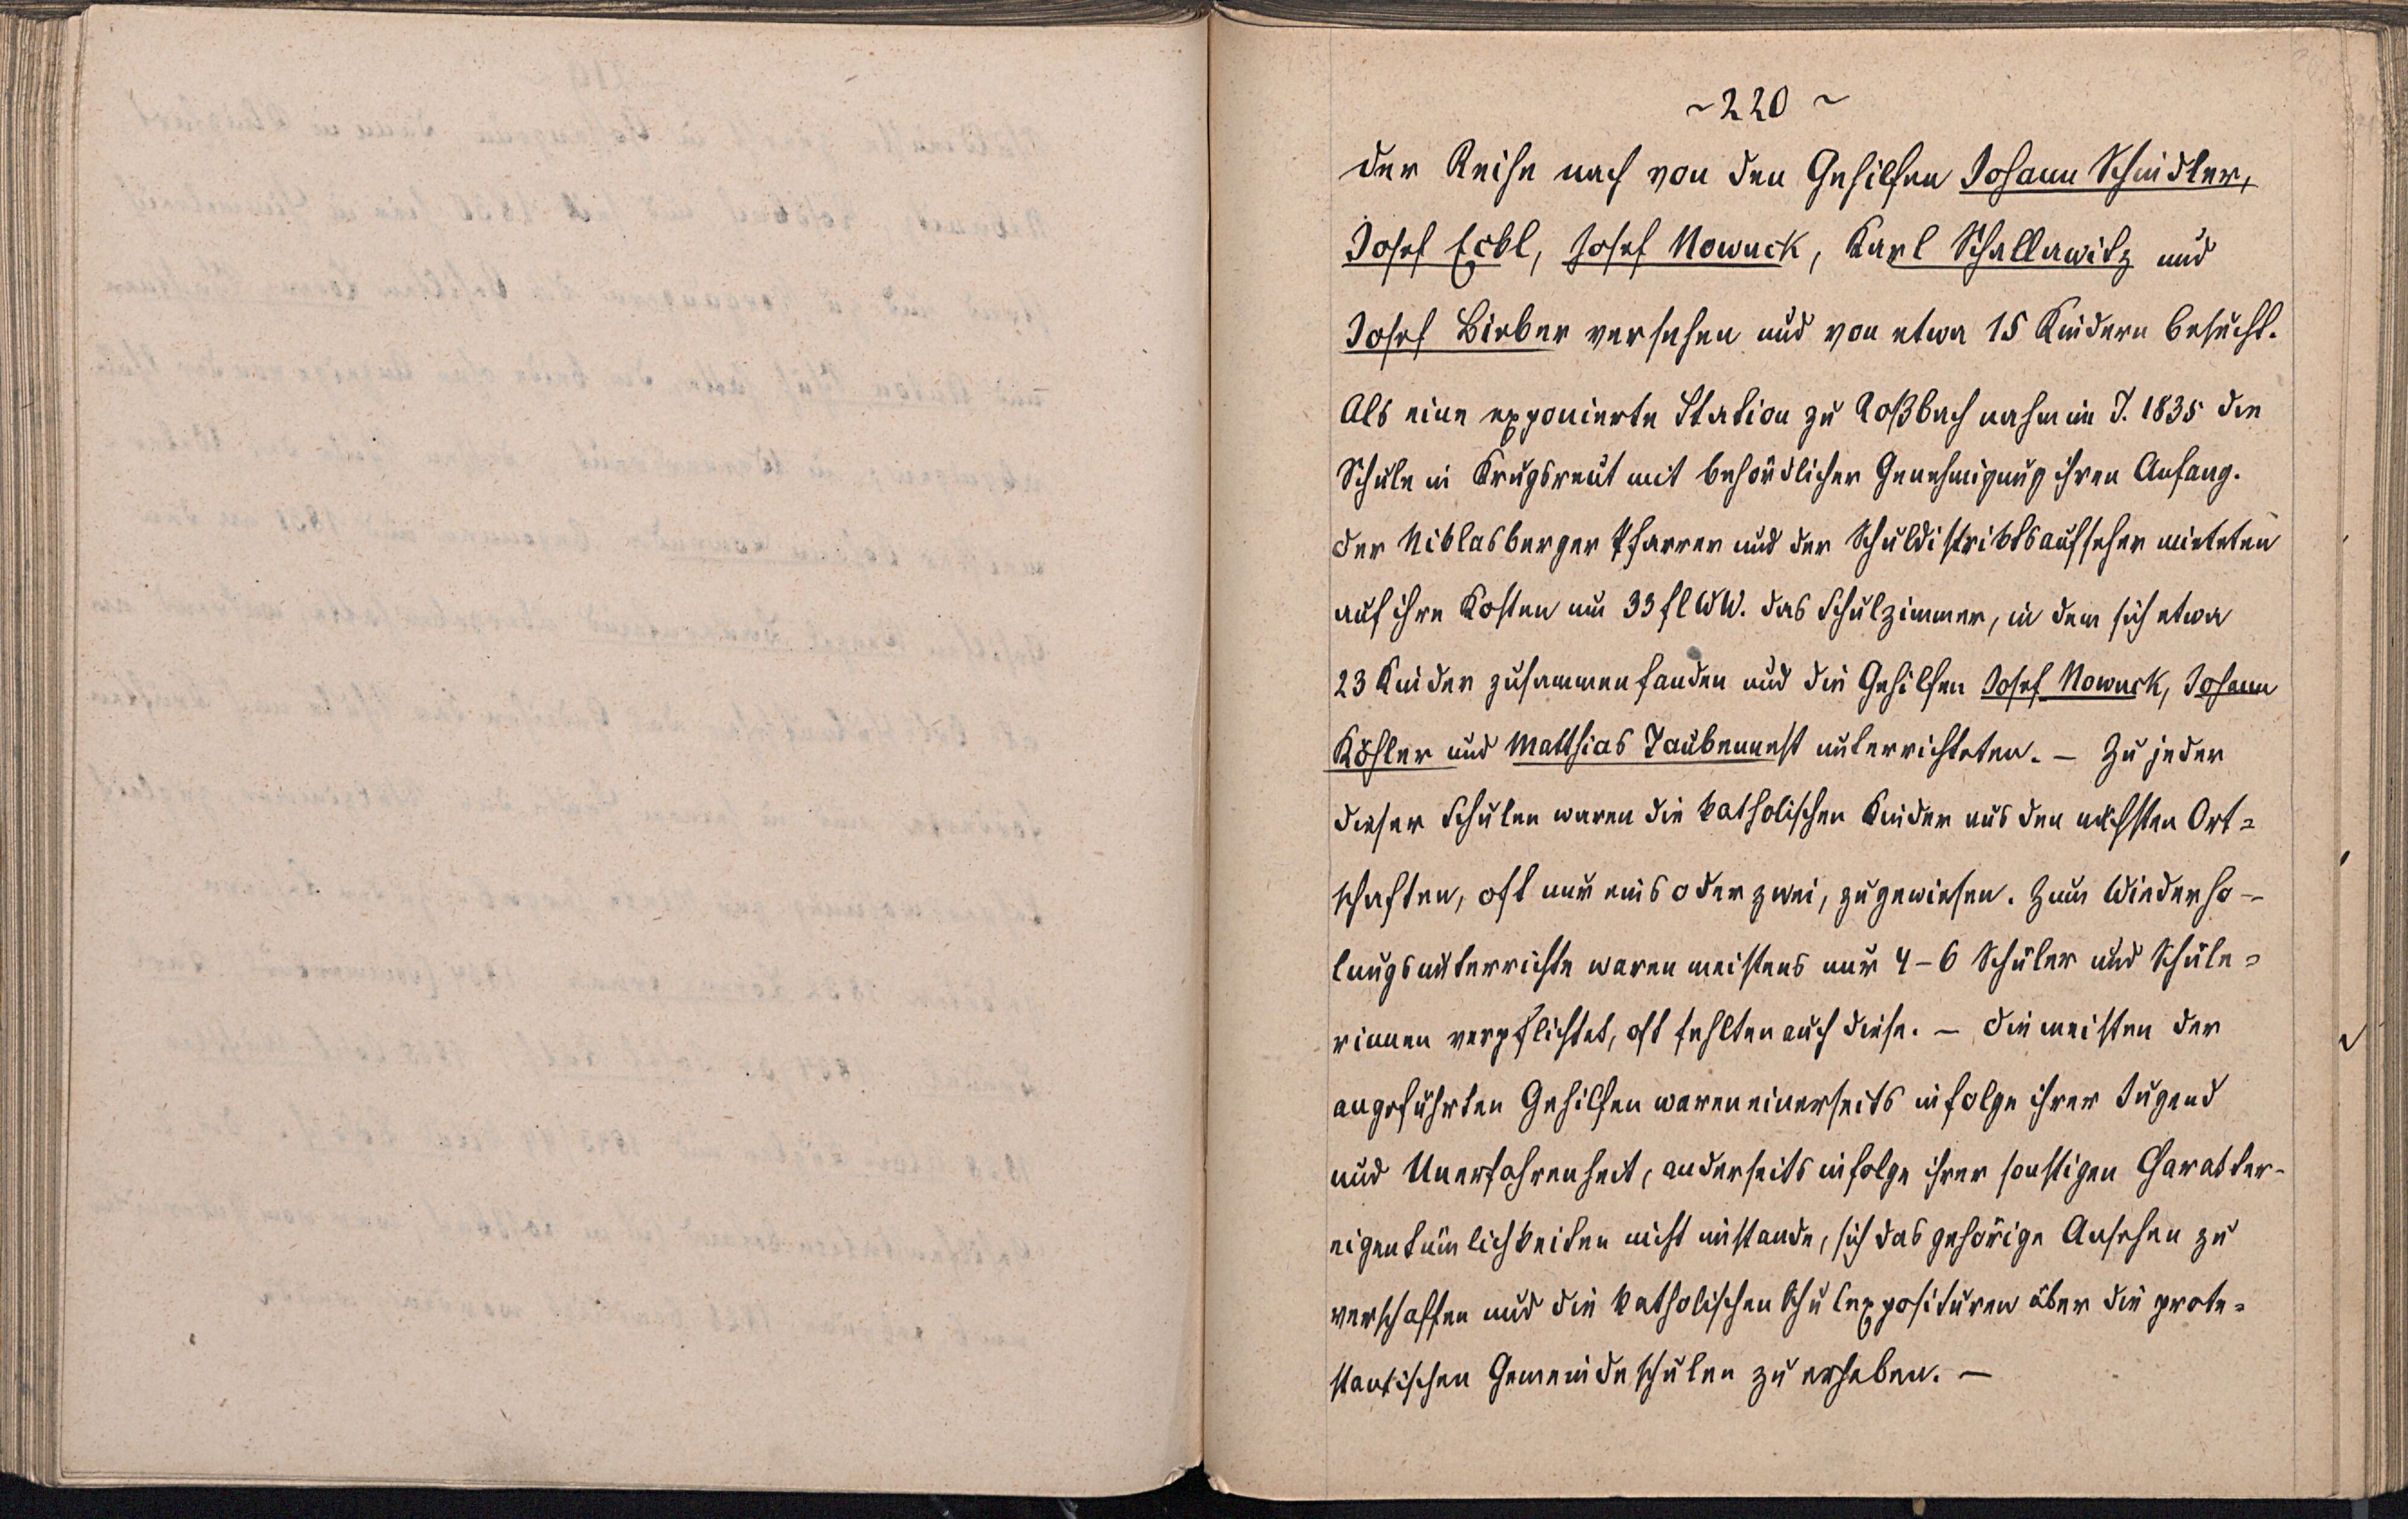 ~ 220 ~
der Reihe nach von den Gehilfen Johann Schindler,
Josef Eckl, Josef Nowack, Karl Schallawitz und
Josef Bieber versehen und von etwa 15 Kindern besucht.
Als eine exponierte Station zu Roßbach nahm im J. 1835 die
Schule in Krugsreut mit behördlicher Genehmigung ihren Anfang.
Der Niklasberger Pfarrer und der Schuldistriktsaufseher mieteten
auf ihre Kosten um 33 fl WW. das Schulzimmer, in dem sich etwa
23 Kinder zusammenfanden und die Gehilfen Josef Nowack, Johann
Köhler und Matthias Taubennest unterrichteten. – Zu jeder
dieser Schulen waren die katholischen Kinder aus den nächsten Ort=
schaften, oft nur eins oder zwei, zugewiesen. Zum Wiederho-
lungsunterrichte waren meistens nur 4–6 Schüler und Schüle=
rinnen verpflichtet, oft fehlten auch diese. – Die meisten der
angeführten Gehilfen waren einerseits infolge ihrer Jugend
und Unerfahrenheit, anderseits infolge ihrer sonstigen Charakter-
eigentümlichkeiten nicht imstande, sich das gehörige Ansehen zu
verschaffen und die katholischen Schulexposituren über die prote=
stantischen Gemeindeschulen zu erheben. –